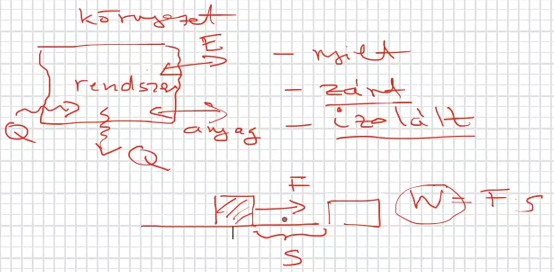 környezet
E
rendszer
Q
anyag
Q
- nyílt
- zárt
- izolált
F
W = F·s
s